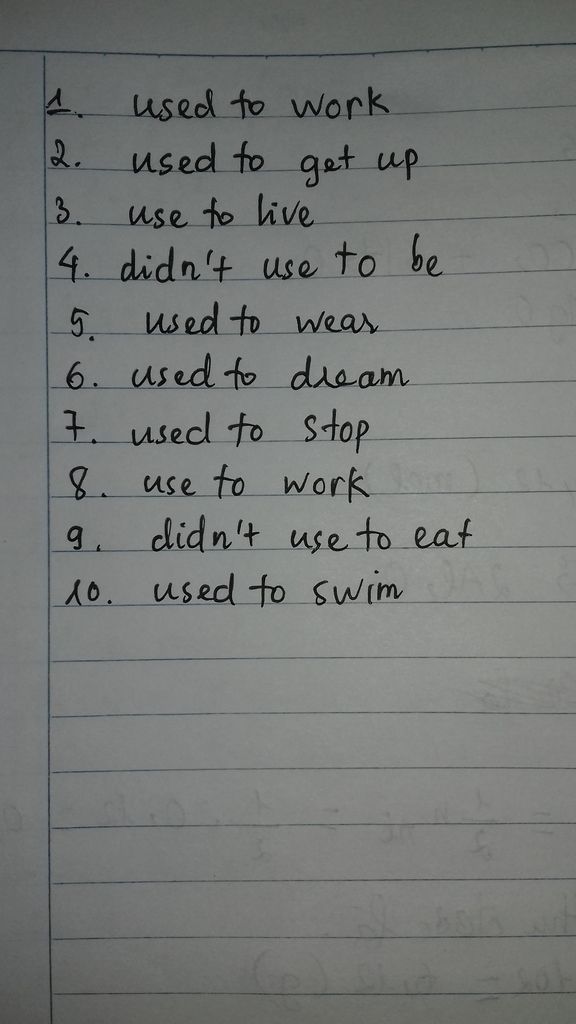 1. used to work
2. used to get up
3. use to live
4. didn't use to be
5. used to wear
6. used to dream
7. used to stop
8. use to work
9. didn't use to eat
10. used to swim